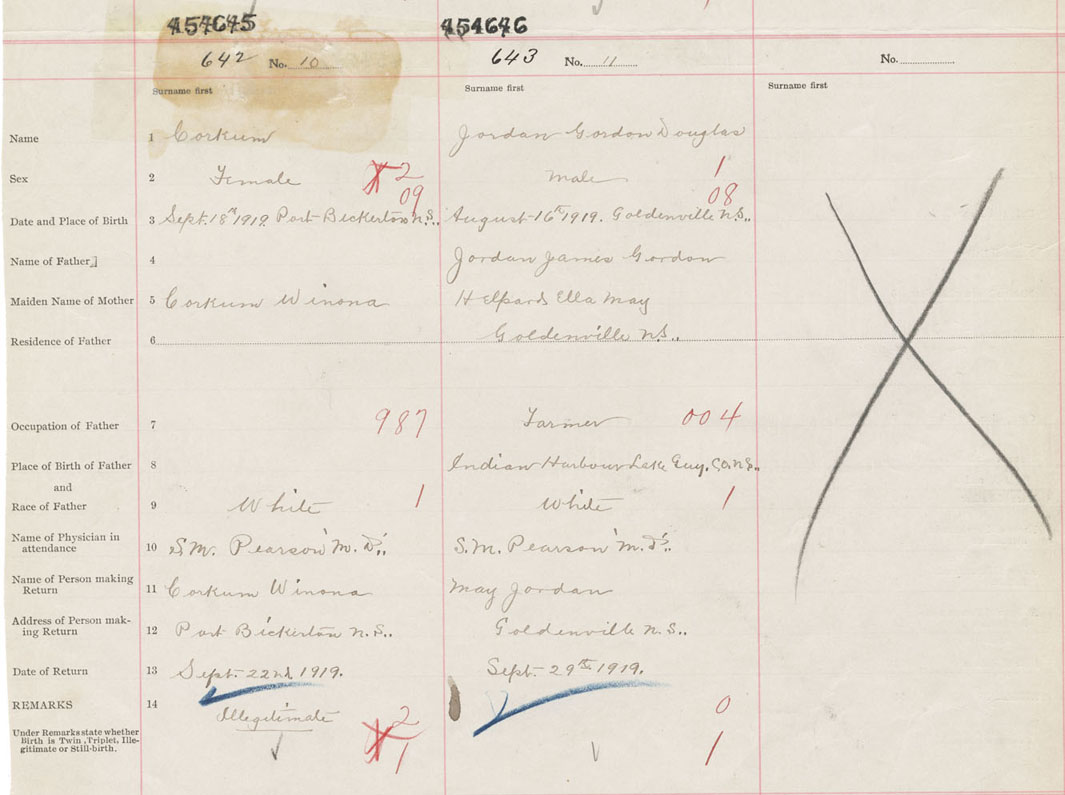 454645 454646
642 No. 10 643 No. 11 No.
Surname first Surname first Surname first
Name 1 Corkum Jordan Gordon Douglas
Sex 2 Female 2 Male 1
09 08
Date and Place of Birth 3 Sept. 18th 1919. Port Bickerton N.S.. August 16th 1919. Goldenville N.S..
Name of Father 4 Jordan James Gordon
Maiden Name of Mother 5 Corkum Winona Helpard Ella May
Residence of Father 6 Goldenville N.S..
Occupation of Father 7 987 Farmer 004
Place of Birth of Father 8 Indian Harbour Lake Guy. Co. N.S..
and
Race of Father 9 White 1 White 1
Name of Physician in
attendance 10 S.M. Pearson M.D.. S.M. Pearson M.D..
Name of Person making
Return 11 Corkum Winona May Jordan
Address of Person mak-
ing Return 12 Port Bickerton N.S.. Goldenville N.S..
Date of Return 13 Sept. 22nd 1919. Sept. 29th 1919.
REMARKS 14 Illegitimate 2 0
Under Remarks state whether
Birth is Twin, Triplet, Ille-
gitimate or Still-birth. 1 1